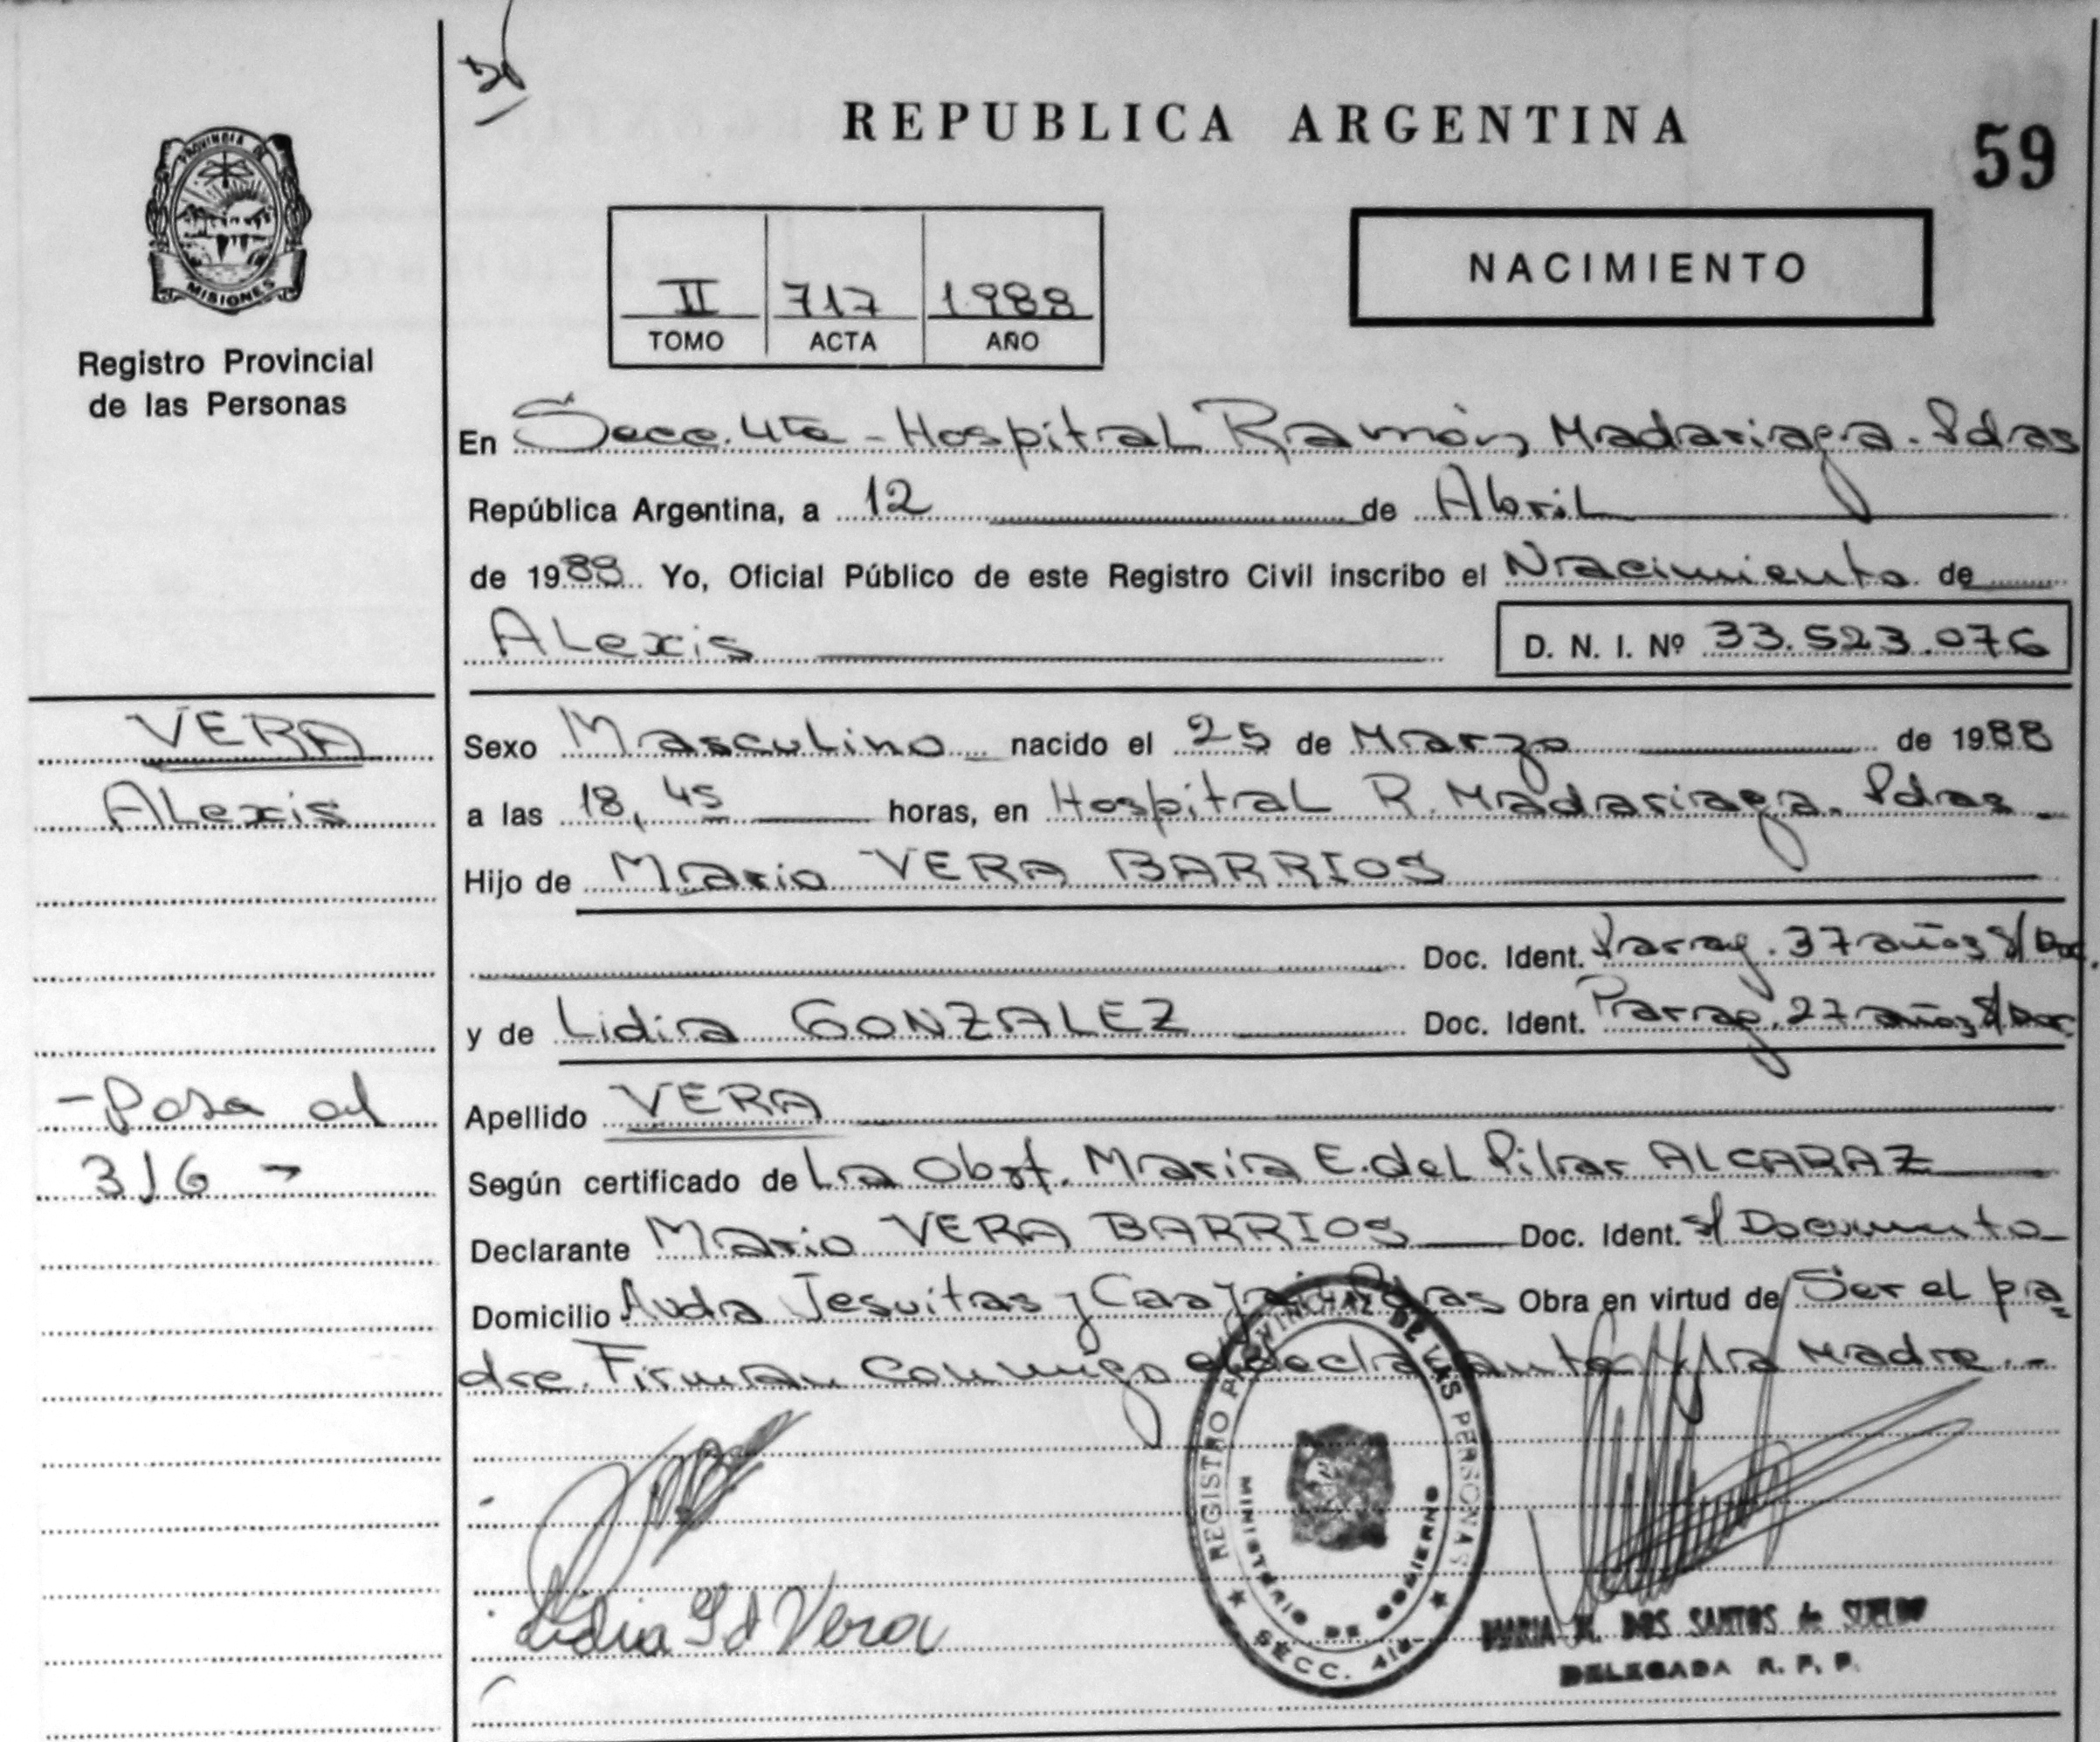 REPUBLICA ARGENTINA
59
PROVINCIA DE
MISIONES
Registro Provincial
de las Personas
II 717 1988
TOMO ACTA AÑO
NACIMIENTO
En Secc. 4ta - Hospital Ramón Madariaga. Pdas
República Argentina, a 12 de Abril
de 1988 Yo, Oficial Público de este Registro Civil inscribo el Nacimiento de
Alexis
D. N. I. Nº 33.523.076
VERA
Alexis
- Pasa al
316 -
Sexo Masculino nacido el 25 de Marzo de 1988
a las 18,45 horas, en Hospital R. Madariaga. Pdas
Hijo de Mario VERA BARRIOS
Doc. Ident. Parag. 37 años s/Doc.
y de Lidia GONZALEZ Doc. Ident. Parag. 27 años s/Doc
Apellido VERA
Según certificado de La Obst. María E. del Pilar ALCARAZ
Declarante Mario VERA BARRIOS Doc. Ident. s/ Documento
Domicilio Avda Jesuitas y Pdas Obra en virtud de Ser el pa-
dre. Firman conmigo el declarante y la Madre.-
REGISTRO PROVINCIAL DE LAS PERSONAS
MINISTERIO DE GOBIERNO
SECC. 4ta
Lidia G d Vera
MARIA DOS SANTOS de SUELDO
DELEGADA R. P. P.